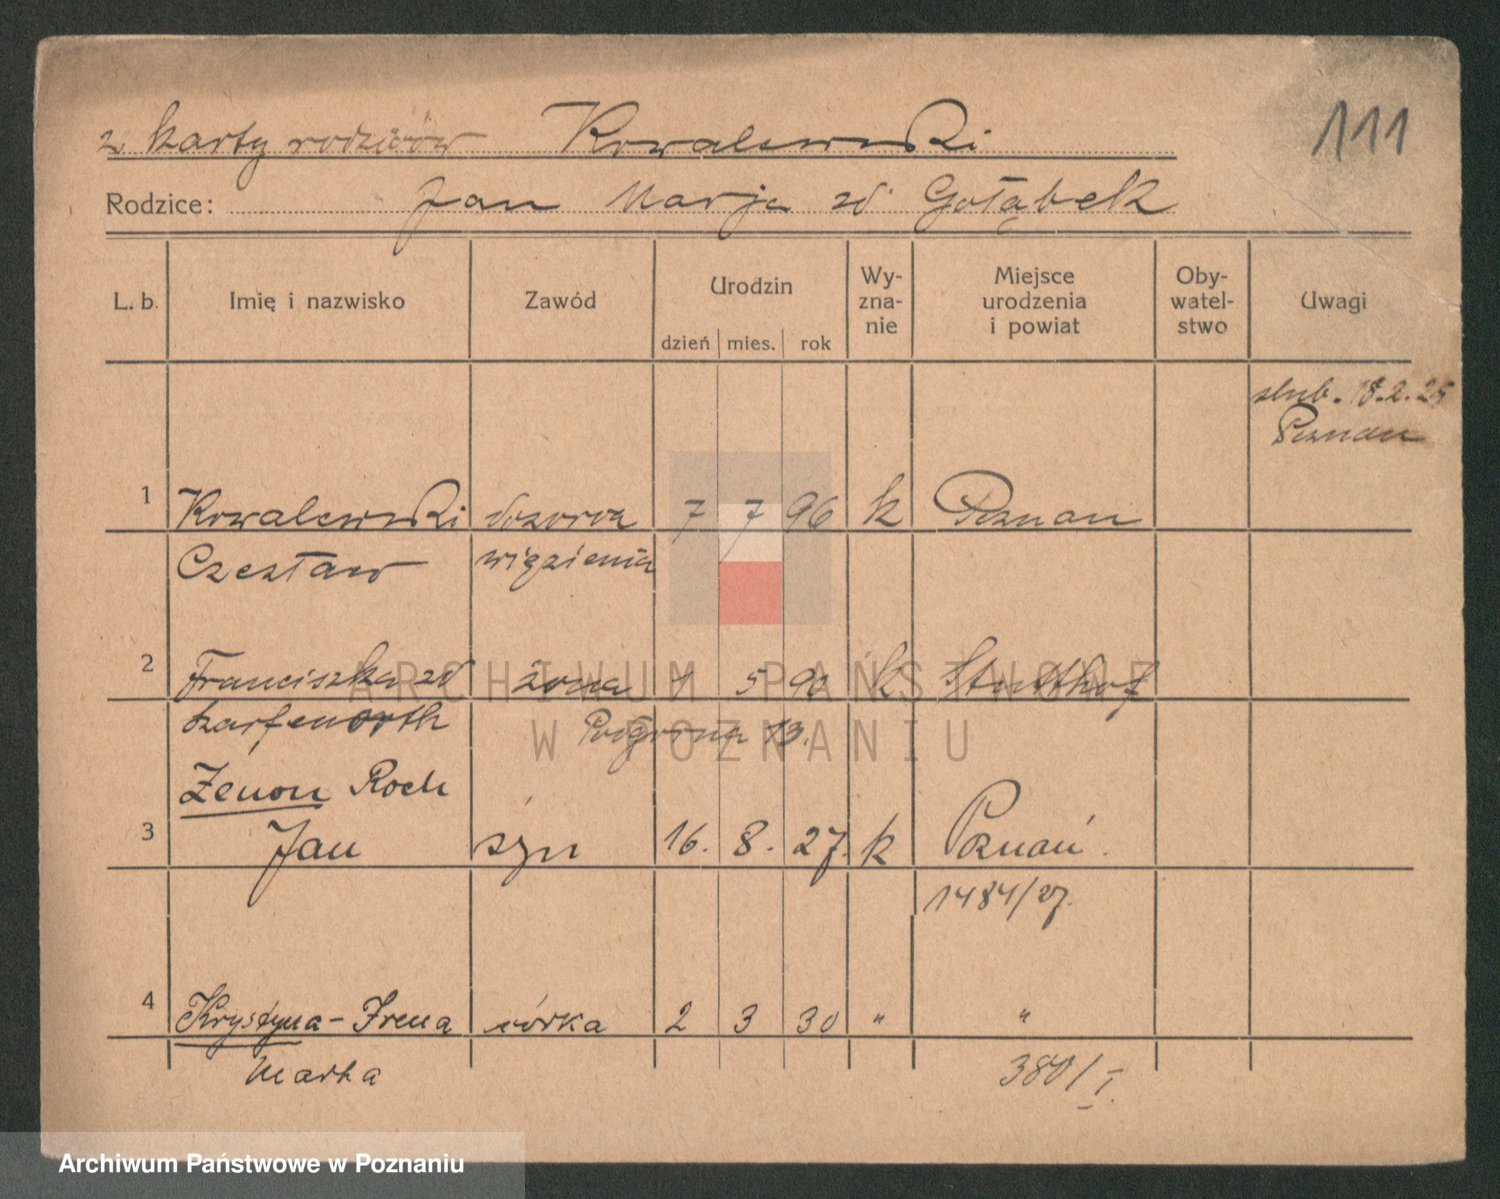 z karty rodziców Kowalewski
111
Rodzice: Jan Marja zd Gołąbek
L. b. Imię i nazwisko Zawód Urodzin dzień mies. rok Wy-zna-nie Miejsce urodzenia i powiat Oby-watel-stwo Uwagi
ślub. 18.2.25
Poznan
1 Kowalewski dozorca 7 7 96 k Poznan
Czesław więzienia
2 Franciszka zd żona 1 5 90 k Stutthof
Karfenorth
Zenon Roch
3 Jan syn 16. 8. 27. k Poznań.
1484/27.
4 Krystyna-Irena córka 2 3 30 " "
Marta 380/I.
ARCHIWUM PAŃSTWOWE
W POZNANIU
Archiwum Państwowe w Poznaniu